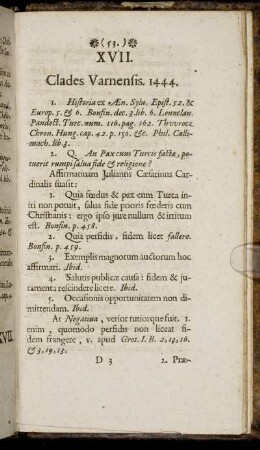 (53.)
XVII.
Clades Varnensis. 1444.
1. Historia ex Æn. Sylv. Epist. 52. &
Europ. 5. & 6. Bonfin. dec. 3. lib. 6. Leunclau.
Pandect. Turc. num. 116. pag. 162. Thwrocz
Chron. Hung. cap. 42. p. 150. &c. Phil. Calli-
mach. lib. 3.
2. Q. An Pax cum Turcis facta, po-
tuerit rumpi salva fide & religione?
Affirmativam Julianus Cæsarinus Car-
dinalis suasit:
1. Quia fœdus & pax cum Turca ini-
ti non potuit, salva fide prioris fœderis cum
Christianis: ergo ipso jure nullum & irritum
est. Bonfin. p. 458.
2. Quia perfidis, fidem licet fallere.
Bonfin. p. 459.
3. Exemplis magnorum auctorum hoc
affirmari. Ibid.
4. Salutis publicæ causa: fidem & ju-
ramenta rescindere licere. Ibid.
5. Occasionis opportunitatem non di-
mittendam. Ibid.
At Negativa, verior tutiorque fuit. 1.
enim, quomodo perfidis non liceat fi-
dem frangere, v. apud Grot. I. B. 2, 14, 16.
& 3, 19, 13.
D 3 2. Præ-
XVII